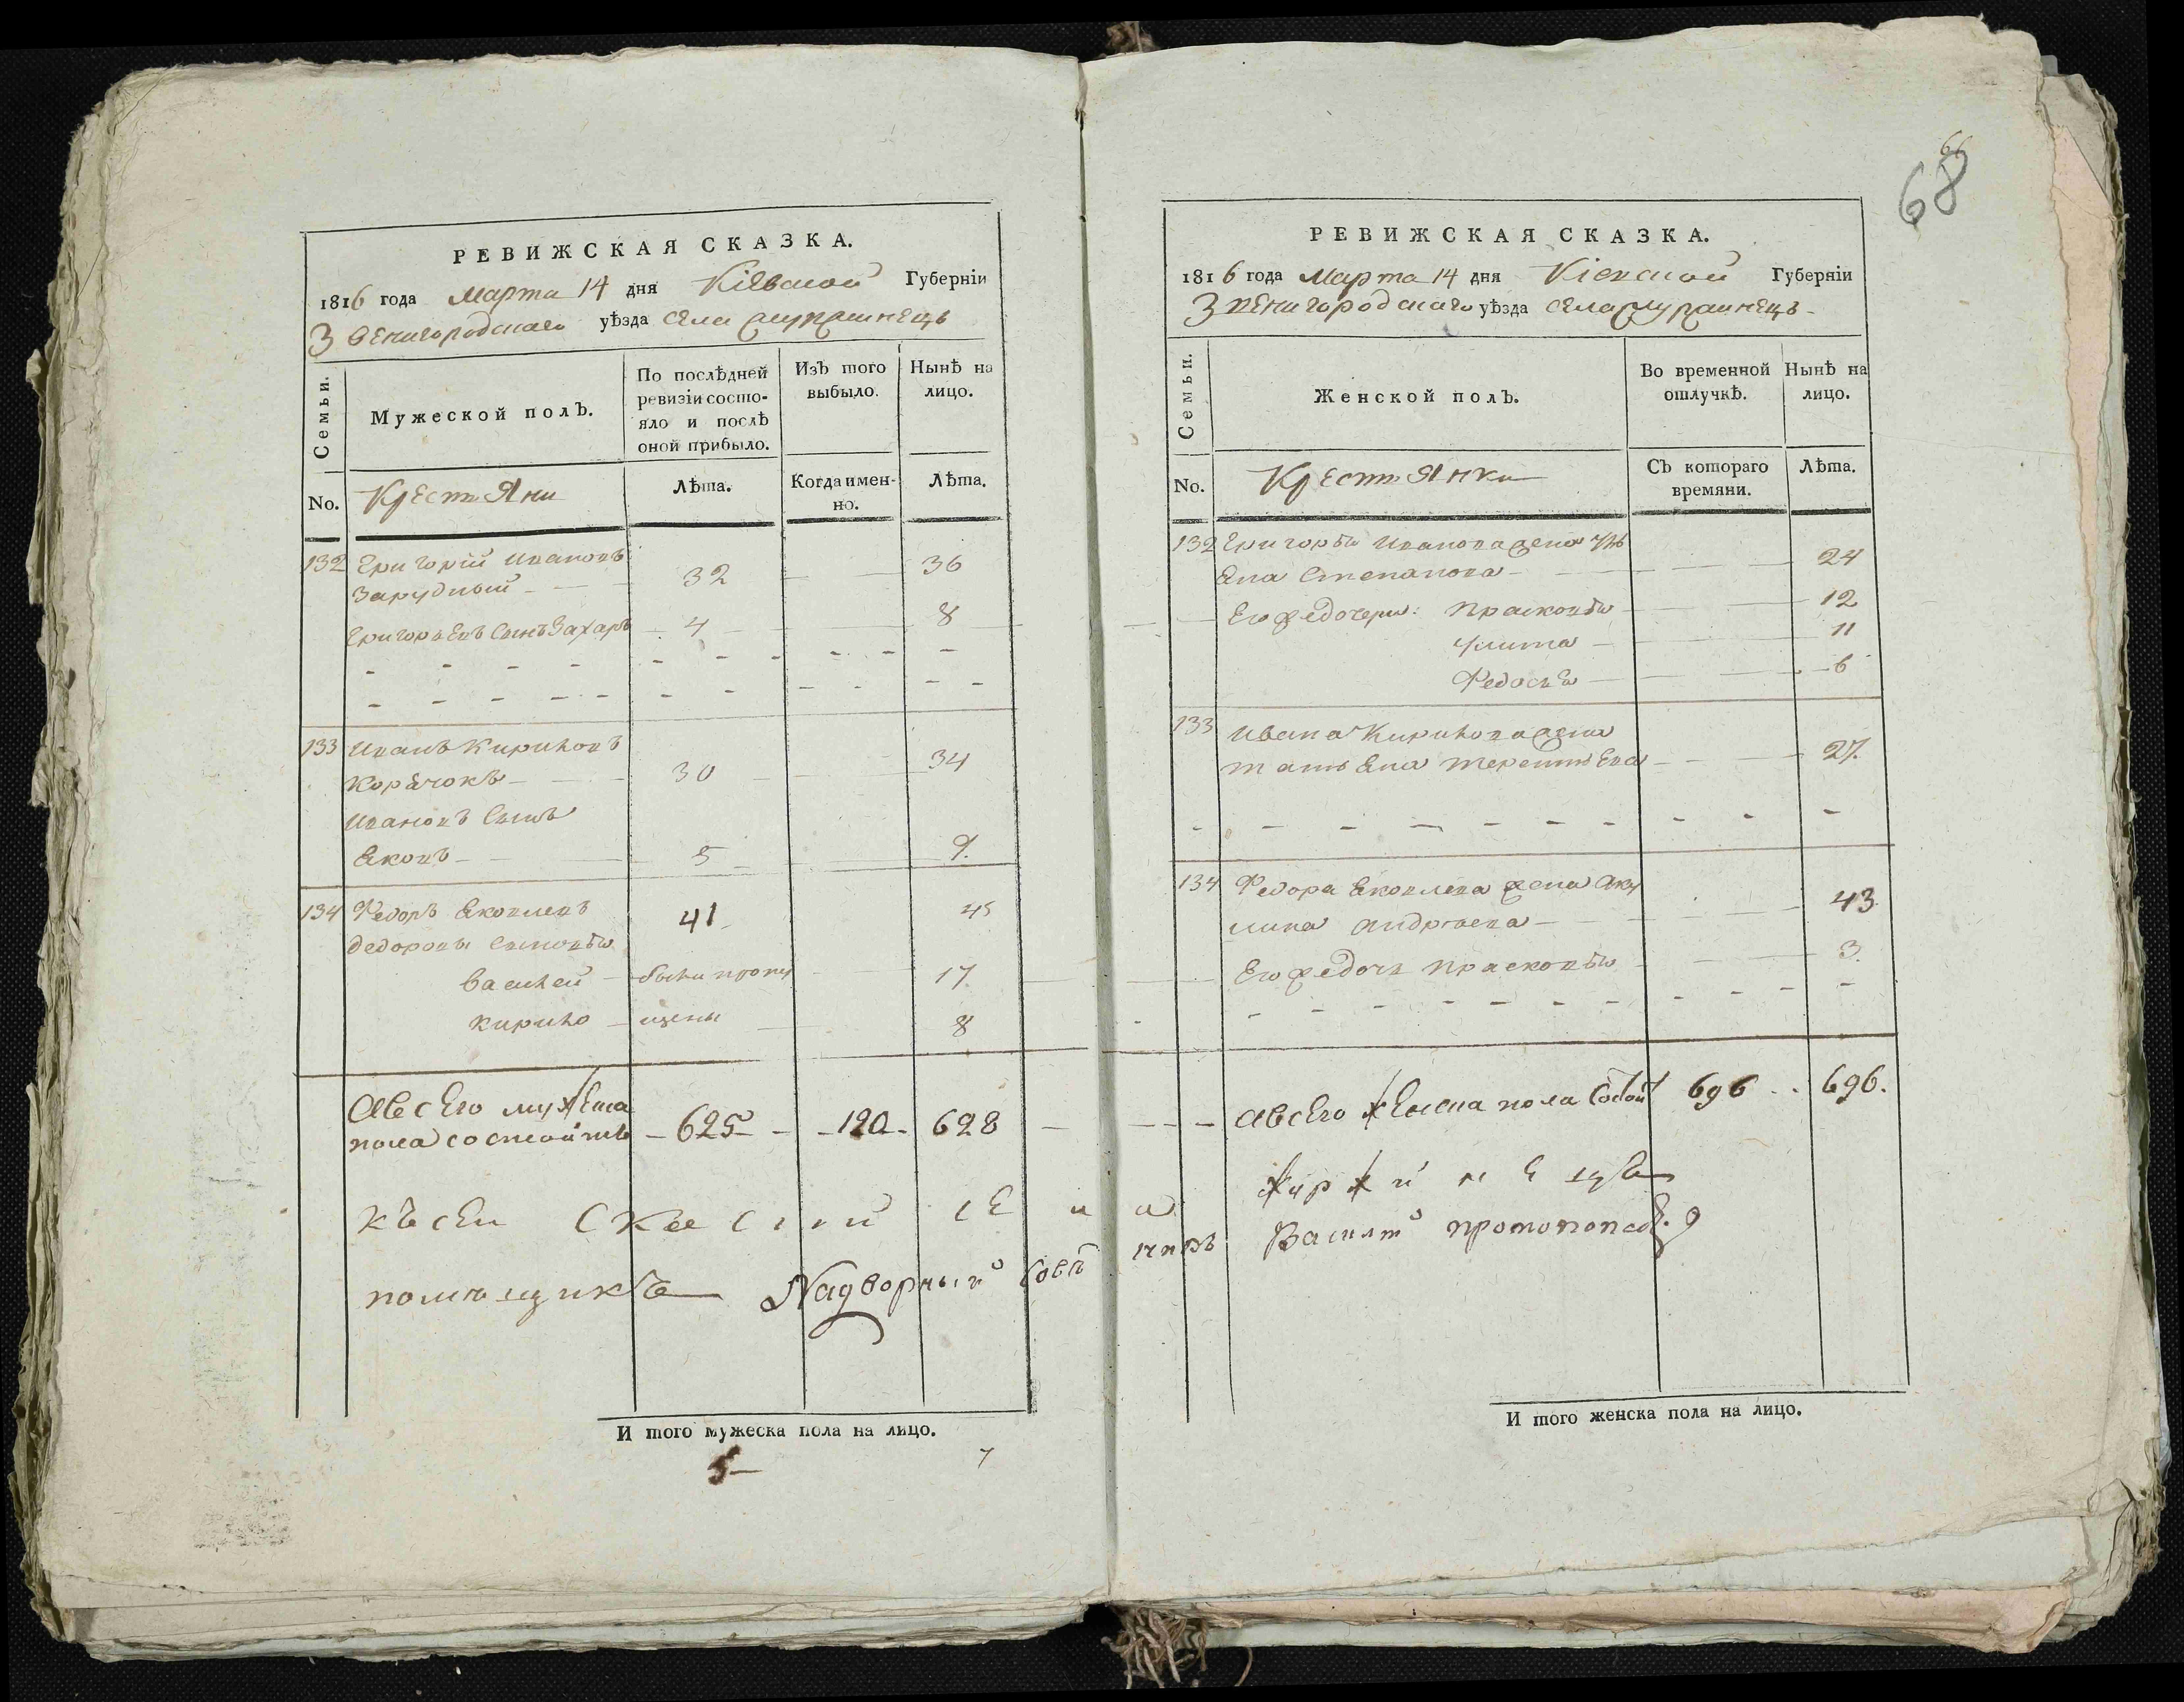 РЕВИЖСКАЯ СКАЗКА.
1816 года Марта 14 дня Кіевской Губерніи
Звенигородскаго уѣзда села
Семьи.
Мужеской полЪ.
По послѣдней ревизіи состояло и послѣ оной прибыло.
ИзЪ того выбыло.
НынѢ на лицо.
No. Крестьяни
Лѣта.
Когда именно.
Лѣта.
132 Григорій Ивановъ
Зарудный 32 36
Григорьевъ Сынъ Захаръ 4 8
133 Иванъ Кириловъ
30 34
Ивановъ Сынъ
Яковъ 5 9.
134 Федоръ Яковлевъ 41 45
Федоровы сыновья
Василей были пропу 17
Кирило щены 8
Авсего мужеска
пола состоитъ 625 120 628
къ сей
помѣщикъ Надворный Совѣтникъ
И того мужеска пола на лицо.
5 7
68
66
РЕВИЖСКАЯ СКАЗКА.
1816 года Марта 14 дня Кіевской Губерніи
Звенигородскаго уѣзда села
Семьи.
Женской полЪ.
Во временной отлучкѢ.
НынѢ на лицо.
No. Крестьянки
СЪ котораго времяни.
Лѣта.
132 Григорья Иванова жена Уль
яна Степанова 24
Его же дочери: Прасковья 12
Улита 11
Федосья 6
133 Ивана Кирилова жена
татьяна терентьева 27.
134 Федора Яковлева жена Аку
лина Андреева 43
Его же дочь Прасковья 3.
Авсего женска пола состоит 696 696.
Василій
И того женска пола на лицо.